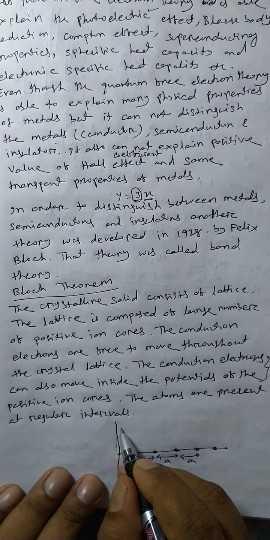 explain the photoelectric effect, Black body
radiation, compton effect, superconducting
properties, specific heat capacity and
electronic specific heat capacity etc.
Even though the quantum free electron theory
is able to explain many physical properties
of metals but it can not distinguish
the metals (conductor), semiconductor &
insulators. It also can not explain positive
value of Hall effect coefficient and some
transport properties of metals.
In order to distinguish between metals,
semiconductors and insulators another
theory was developed in 1928 by Felix
Bloch. That theory was called band
theory.
Bloch Theorem
The crystalline solid consists of lattice.
The lattice is composed of large numbers
of positive ion cores. The conduction
electrons are free to move throughout
the crystal lattice. The conduction electrons
can also move inside the potentials of the
positive ion cores. The atoms are present
at regular intervals.
a a